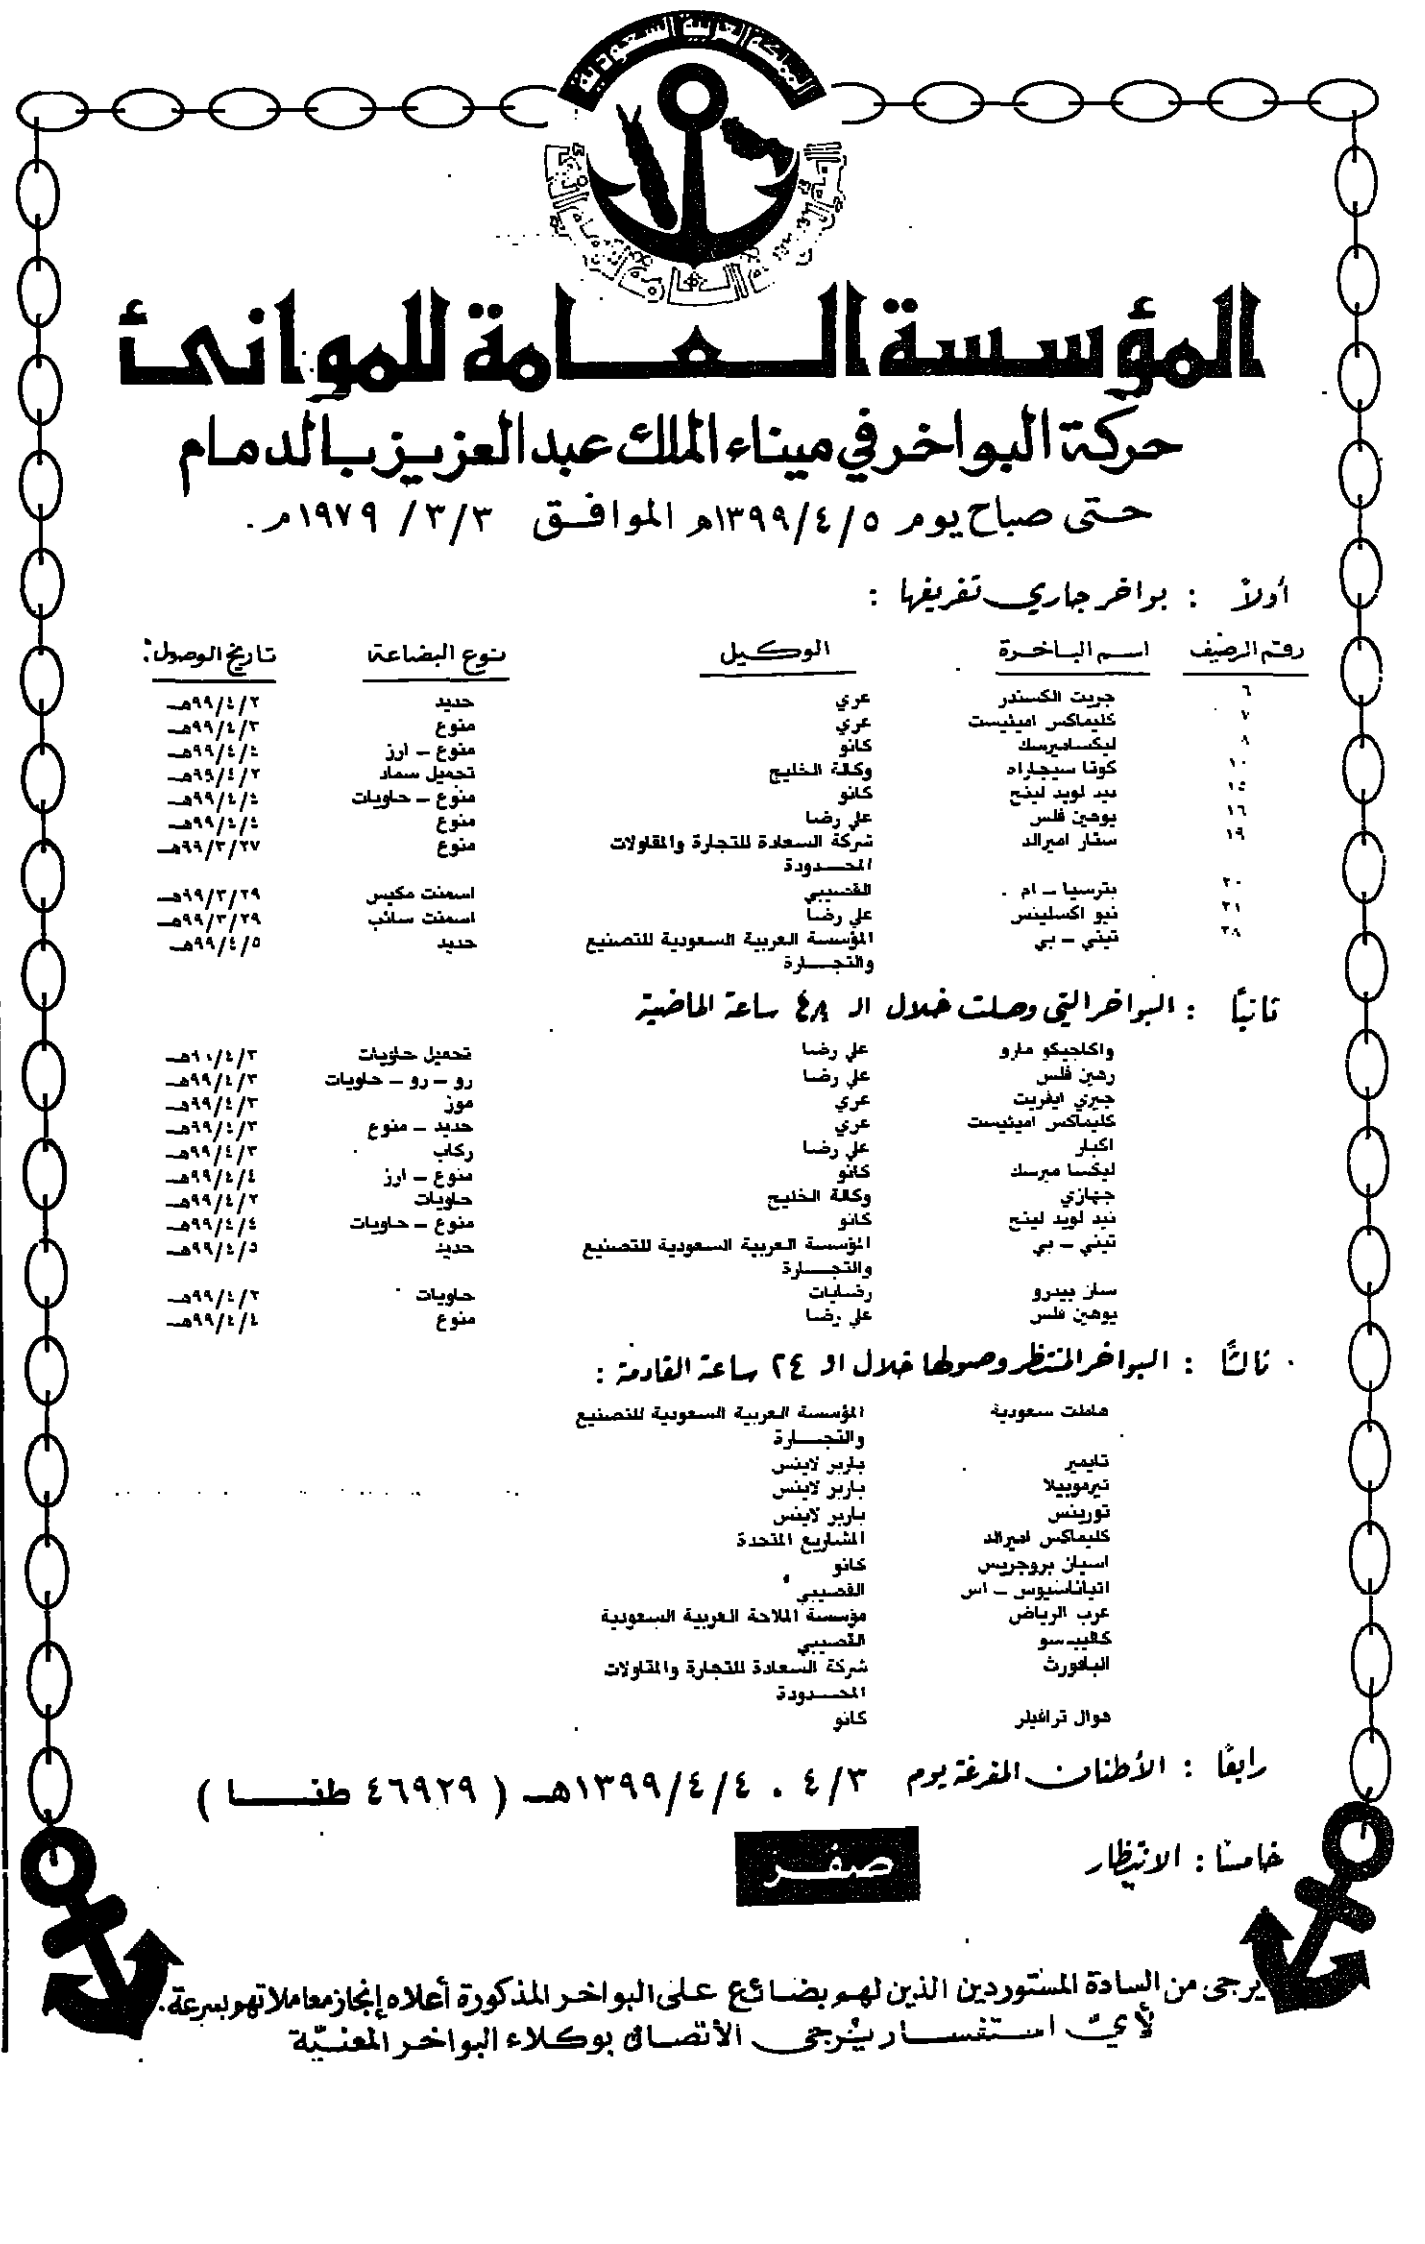 المملكة العربية السعودية
المؤسسة العامة للموانئ
حركة البواخر في ميناء الملك عبد العزيز بالدمام
حتى صباح يوم ١٣٩٩/٤/٥هـ الموافق ١٩٧٩/٣/٣م.
أولاً : بواخر جاري تفريغها :
رقم الرصيف اسم الباخرة الوكيل نوع البضاعة تاريخ الوصول:
٦ جريت الكسندر عري حديد ٩٩/٤/٢هـ
٧ كليماكس اميثيست عري منوع ٩٩/٤/٣هـ
٨ ليكساميرسك كانو منوع - ارز ٩٩/٤/٤هـ
١٠ كوتا سيجاراه وكالة الخليج تحميل سماد ٩٩/٤/٢هـ
١٥ نيد لويد لينج كانو منوع - حاويات ٩٩/٤/٤هـ
١٦ يوهين فلس علي رضا منوع ٩٩/٤/٤هـ
١٩ ستار اميرالد شركة السعادة للتجارة والمقاولات منوع ٩٩/٣/٢٧هـ
المحـــدودة
٢٠ بترسيا - ام القصيبي اسمنت مكيس ٩٩/٣/٢٩هـ
٢١ نيو اكسلينس علي رضا اسمنت سائب ٩٩/٣/٢٩هـ
٢٨ تيني - بي المؤسسة العربية السعودية للتصنيع حديد ٩٩/٤/٥هـ
والتجـــارة
ثانياً : البواخر التي وصلت خلال الـ ٤٨ ساعة الماضية
واكاجيكو مارو علي رضا تحميل حاويات ٤/٣/هـ
رهين فلس علي رضا رو - رو - حاويات ٩٩/٤/٣هـ
جيري ايفريت عري موز ٩٩/٤/٣هـ
كليماكس اميثيست عري حديد - منوع ٩٩/٤/٣هـ
اكبار علي رضا ركاب ٩٩/٤/٣هـ
ليكسا ميرسك كانو منوع - ارز ٩٩/٤/٤هـ
جهازي وكالة الخليج حاويات ٩٩/٤/٢هـ
نيد لويد لينج كانو منوع - حاويات ٩٩/٤/٤هـ
تيني - بي المؤسسة العربية السعودية للتصنيع حديد ٩٩/٤/٥هـ
والتجـــارة
سان بيدرو رضايات حاويات ٩٩/٤/٢هـ
يوهين فلس علي رضا منوع ٩٩/٤/٤هـ
ثالثاً : البواخر المنتظر وصولها خلال الـ ٢٤ ساعة القادمة :
سعودية المؤسسة العربية السعودية للتصنيع
والتجـــارة
تايمير باربر لاينس
ثيرموبيلا باربر لاينس
تورينس باربر لاينس
كليماكس اميرالد المشاريع المتحدة
اسيان بروجريس كانو
اتياناسيوس - اس القصيبي
عرب الرياض مؤسسة الملاحة العربية السعودية
القصيبي
شركة السعادة للتجارة والمقاولات
المحـــدودة
هوال ترافيلر كانو
رابعاً : الأطنان المفرغة يوم ٤/٣ . ١٣٩٩/٤/٤هـ ( ٤٦٩٢٩ طنـــا )
خامساً : الانتظار صفر
يرجى من السادة المستوردين الذين لهم بضائع على البواخر المذكورة أعلاه إنجاز معاملاتهم بسرعة.
لأيّ استفسار يُرجى الأتصال بوكلاء البواخر المعنيّة